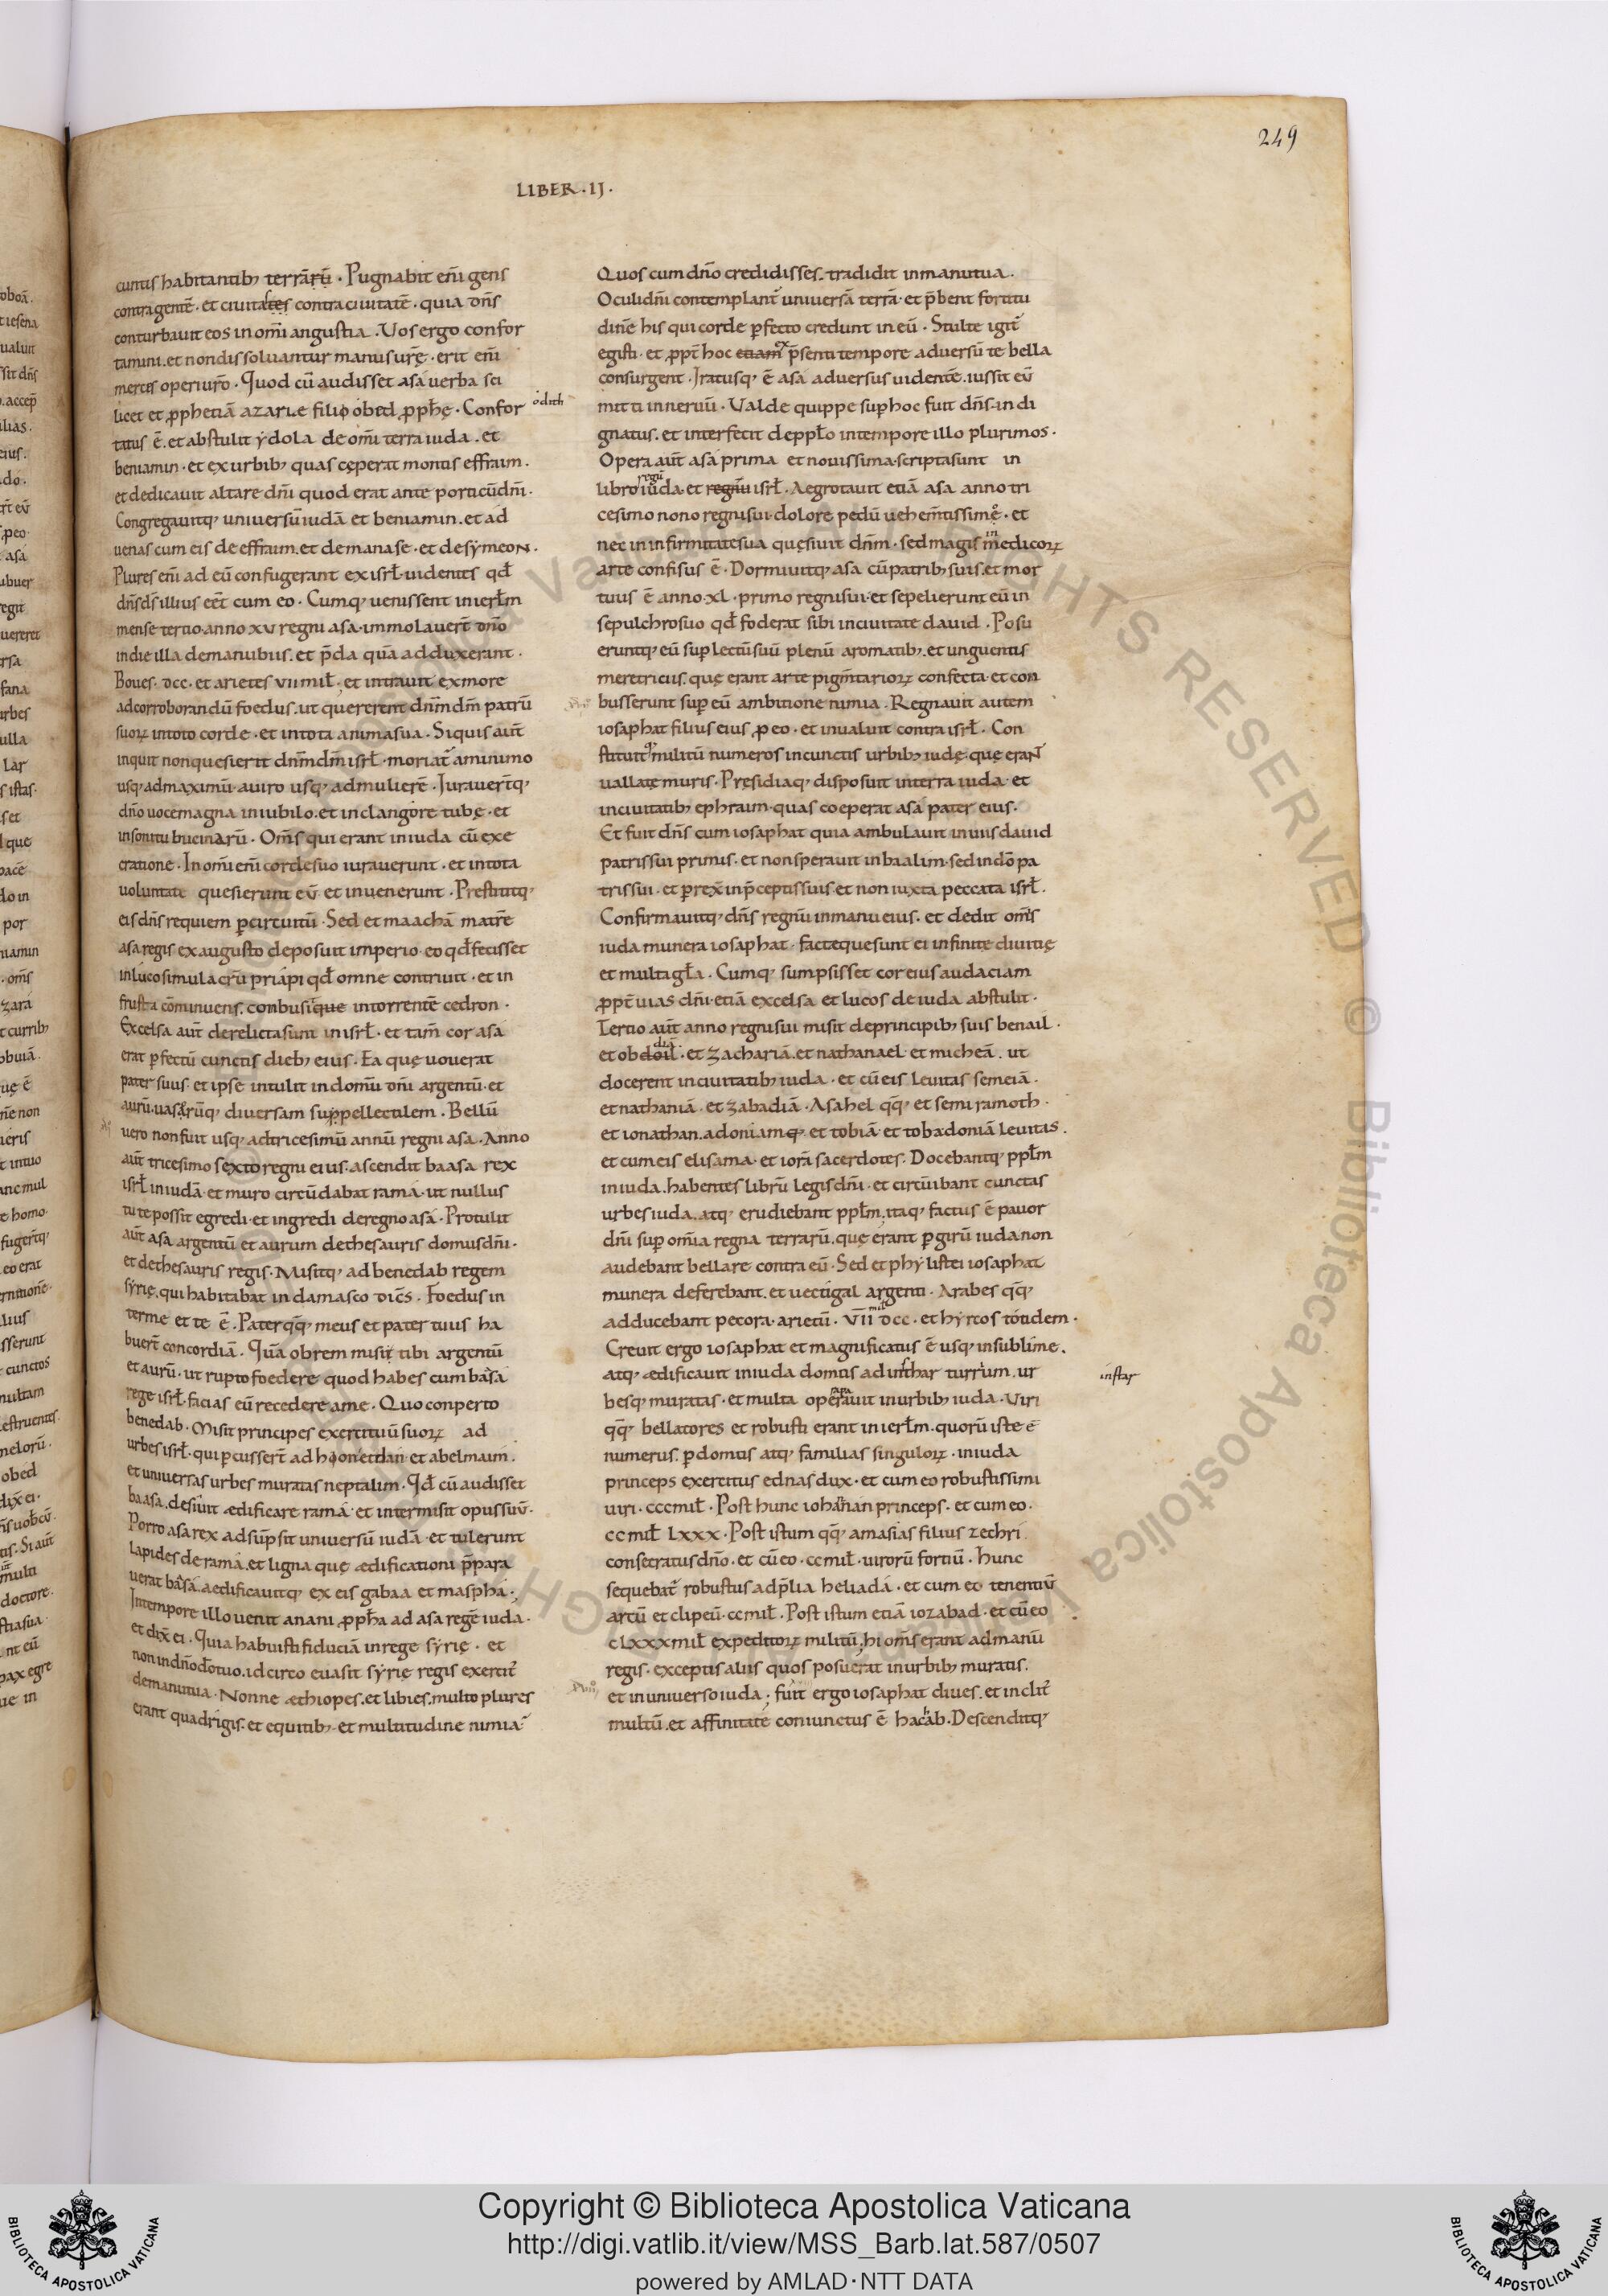 249
LIBER·IJ·
cuntis habitantib; terrarū · Pugnabit eni gens
contra gentē · et ciuitates contra ciuitatē · quia dns
conturbauit eos in omi angustia . Uos ergo confor
tamini . et non dissoluantur manus urę · erit eni
merces operi uro · Quod cū audisset asa uerba sci
licet et pphetiā azarie filio obed pphę · Confor
odith
tatus ē . et abstulit ydola de omi terra iuda . et
beniamin · et ex urbib; quas cęperat montis effraim .
et dedicauit altare dni quod erat ante porticū dni ·
Congregauitq; uniuersū iudā et beniamin . et ad
uenas cum eis de effraim . et de manase · et de symeon ·
Plures eni ad eū confugerant ex isrl · uidentes qd
dns ds illius eet cum eo · Cumq; uenissent in ierlm
mense tertio anno xv regni asa · immolauert dno
in die illa de manubiis . et pda quā adduxerant ·
Boues · dcc · et arietes vii mil · et intrauit ex more
ad corroborandū foedus . ut quererent dnm dm patrū
suoꝝ in toto corde · et in tota anima sua · Siquis aut
inquit non quesierit dnm dm isrl · moriat a minimo
usq; ad maximū · a uiro usq; ad mulierē · Jurauertq;
dno uoce magna in iubilo . et in clangore tubę · et
in sonitu bucinarū · Oms qui erant in iuda cū exe
cratione · In omi eni corde suo iurauerunt · et in tota
uoluntate quesierunt eū et inuenerunt · Prestititq;
eis dns requiem p circuitū · Sed et maachā matrē
asa regis ex augusto deposuit imperio · eo qd fecisset
in luco simulacrū priapi qd omne contriuit · et in
frusta comminuens . conbusique in torrente cedron ·
Excelsa aut derelicta sunt in isrl · et tam cor asa
erat pfectū cunctis dieb; eius · Ea quę uouerat
pater suus · et ipse intulit in domū dni argentū · et
aurū . uasarūq; diuersam suppellectilem . Bellū
uero non fuit usq; ad tricesimū annū regni asa · Anno
aut tricesimo sexto regni eius · ascendit baasa rex
isrl in iudā · et muro circūdabat rama · ut nullus
tute possit egredi · et ingredi de regno asa · Protulit
aut asa argentū et aurum de thesauris domus dni ·
et de thesauris regis · Misitq; ad benedab regem
syrię . qui habitabat in damasco dics . Foedus in
ter me et te ē · Pater qq; meus et pater tuus ha
buert concordiā · Quā obrem misi tibi argentū
et aurū · ut rupto foedere quod habes cum basa
rege isrl · facias eū recedere a me · Quo conperto
benedab · Misit principes exercituū suoꝝ ad
urbes isrl · qui pcussert ad hion et dan · et abelmaim .
et uniuersas urbes muratas neptalim · Qd cū audisset
baasa . desiuit ædificare rama · et intermisit opus suū ·
Porro asa rex adsūpsit uniuersū iudā · et tulerunt
lapides de rama . et ligna quę ædificationi ppara
uerat basa . aedificauitq; ex eis gabaa et maspha ·
In tempore illo uenit anani ppha ad asa regē iuda ·
et dix ei · Quia habuisti fiduciā in rege syrię · et
non in dno do tuo . idcirco euasit syrię regis exercit
de manu tua · Nonne æthiopes . et libies . multo plures
erant quadrigis . et equitib; · et multitudine nimia
Quos cum dno credidisses . tradidit in manu tua .
Oculi dni contemplant uniuersā terrā · et pbent fortitu
dinē his qui corde pfecto credunt in eū · Stulte igit
egisti · et ppt hoc etiam psenti tempore aduersū te bella
consurgent · Iratusq; ē asa aduersus uidentē . iussit eū
mitti in neruū · Ualde quippe sup hoc fuit dns in di
gnatus . et interfecit de pplo in tempore illo plurimos ·
Opera aut asa prima et nouissima . scripta sunt in
regū
libro iuda · et regnū isrl · Aegrotauit etiā asa anno tri
cesimo nono regni sui · dolore pedū uehemtissimę · et
nec in infirmitate sua quęsiuit dnm · sed magis in medicoꝝ
arte confisus ē · Dormiuitq; asa cū patrib; suis . et mor
tuus ē anno · xl · primo regni sui · et sepelierunt eū in
sepulchro suo qd foderat sibi in ciuitate dauid . Posu
eruntq; eū sup lectū suū plenū aromatib; . et unguentis
meretriciis . quę erant arte pigmtarioꝝ confecta · et con
busserunt sup eū ambitione nimia . Regnauit autem
iosaphat filius eius p eo · et inualuit contra isrl · Con
stituitq; militū numeros in cunctis urbib; iudę · quę erant
uallatę muris · Pręsidiaq; disposuit in terra iuda · et
in ciuitatib; ephraim · quas coeperat asa pater eius .
Et fuit dns cum iosaphat quia ambulauit in uiis dauid
patris sui primis · et non sperauit in baalim · sed in do pa
tris sui · et prex in pceptis suis · et non iuxta peccata isrl ·
Confirmauitq; dns regnū in manu eius . et dedit oms
iuda munera iosaphat · factęque sunt ei infinitę diuitię
et multa gla . Cumq; sumpsisset cor eius audaciam
ppt uias dni · etiā excelsa et lucos de iuda abstulit ·
Tertio aut anno regni sui misit de principib; suis benail ·
et obdoil · et zachariā . et nathanael · et micheā . ut
docerent in ciuitatib; iuda · et cū eis leuitas semeiā .
et nathaniā · et zabadiā · Asahel qq; et semiramoth ·
et ionathan . adoniamq; et tobiā · et tobadoniā leuitas .
et cum eis elisama · et iorā sacerdotes . Docebantq; pplm
in iuda . habentes librū legis dni · et circūibant cunctas
urbes iuda . atq; erudiebant pplm . itaq; factus ē pauor
dni sup omia regna terrarū . quę erant p girū iuda non
audebant bellare contra eū · Sed et phylistei iosaphat
munera deferebant . et uectigal argenti · Arabes qq;
adducebant pecora · arietū · VII dcc · et hyrcos totidem ·
Creuit ergo iosaphat et magnificatus ē usq; in sublime .
atq; ædificauit in iuda domus ad insthar turrium . ur
instar
besq; muratas · et multa operauit in urbib; iuda · Viri
qq; bellatores et robusti erant in ierlm . quorū iste ē
numerus . p domus atq; familias singuloꝝ · in iuda
princeps exercitus ednas dux · et cum eo robustissimi
uiri · ccc mil · Post hunc iohanan princeps · et cum eo ·
cc mil lxxx · Post istum qq; amasias filius zechri
consecratus dno · et cū eo · cc mil · uirorū fortiū · hunc
sequebat robustus ad plia heliada · et cum eo tenentiū
arcū et clipeū · cc mil · Post istum etiā iozabad · et cū eo
clxxx mil expeditoꝝ militū hi oms erant ad manū
regis · exceptis aliis quos posuerat in urbib; muratis .
et in uniuerso iuda ; fuit ergo iosaphat diues . et inclit
multū . et affinitate coniunctus ē hacab . Descenditq;
Copyright © Biblioteca Apostolica Vaticana
http://digi.vatlib.it/view/MSS_Barb.lat.587/0507
powered by AMLAD·NTT DATA